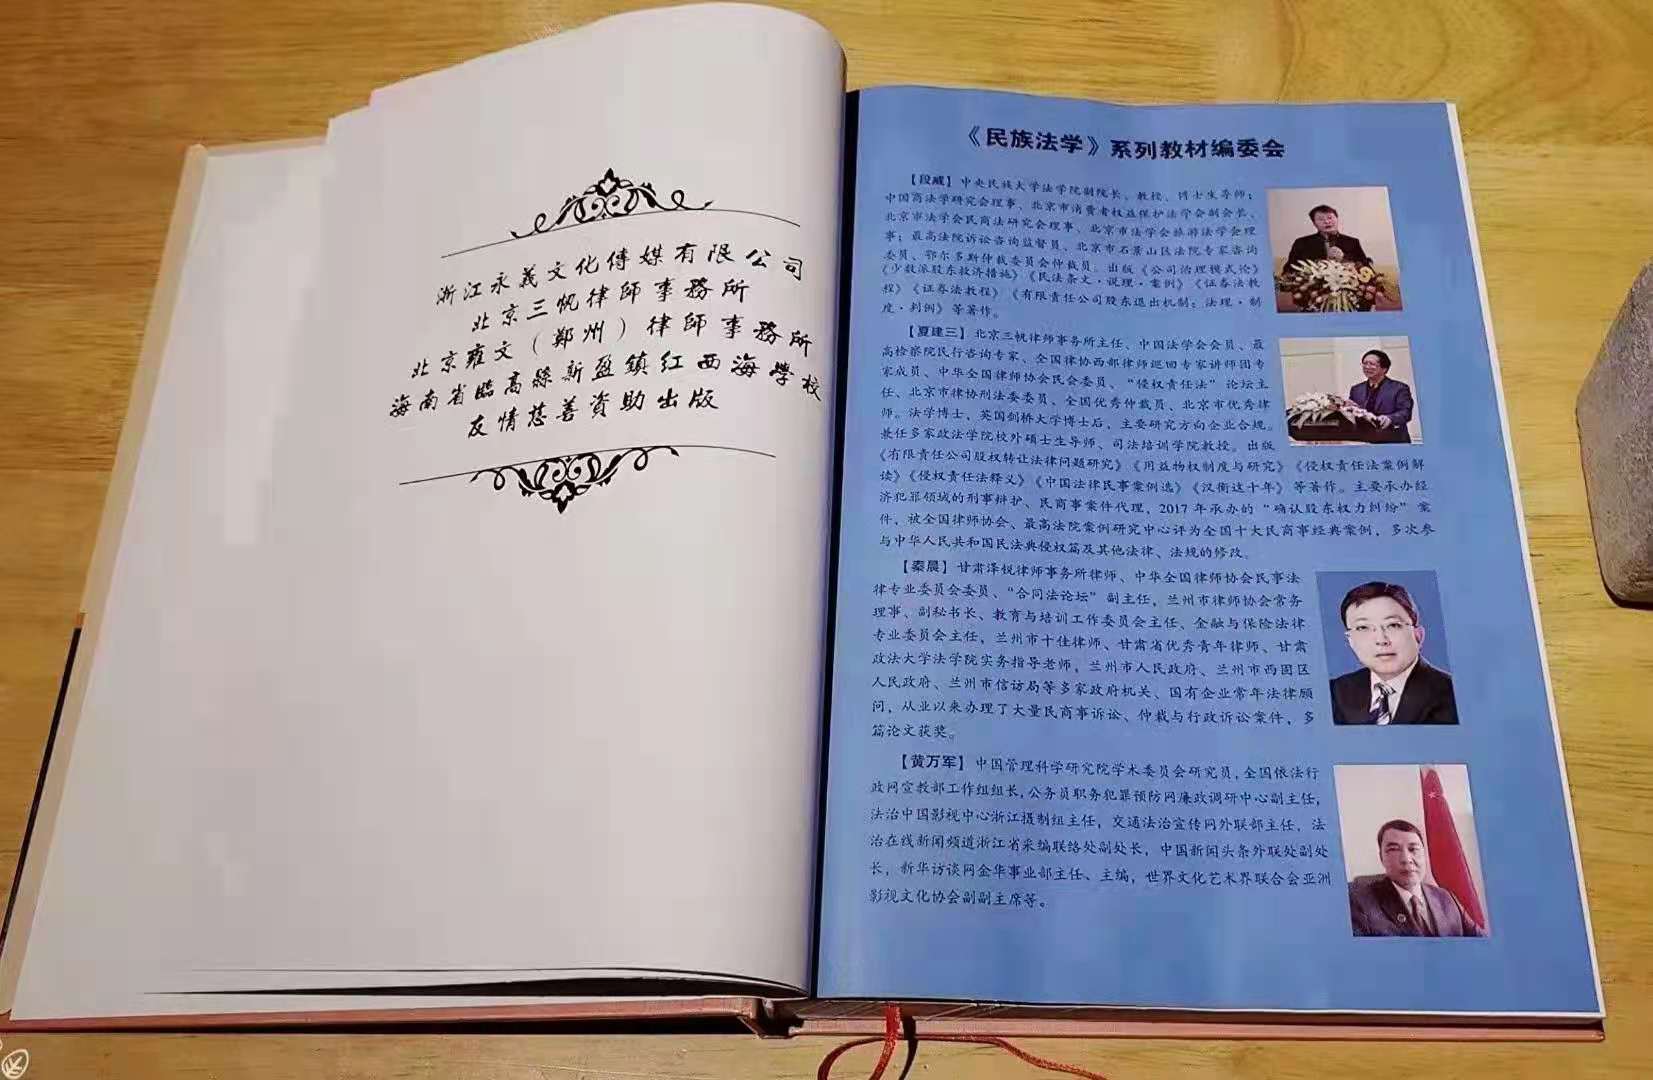 浙江永義文化傳媒有限公司
北京三帆律師事務所
北京雍文（鄭州）律師事務所
海南省臨高縣新盈鎮紅西海學校
友情慈善資助出版
《民族法学》系列教材编委会
【段威】中央民族大学法学院副院长、教授、博士生导师；
中国商法学研究会理事、北京市消费者权益保护法学会副会长、
北京市法学会民商法研究会理事、北京市法学会旅游法学会理
事；最高法院诉讼咨询监督员、北京市石景山区法院专家咨询
委员、鄂尔多斯仲裁委员会仲裁员。出版《公司治理模式论》
《少数派股东救济措施》《民法条文·说理·案例》《证券法教
程》《证券法教程》《有限责任公司股东退出机制：法理·制
度·判例》等著作。
【夏建三】北京三帆律师事务所主任、中国法学会会员、最
高检察院民行咨询专家、全国律协西部律师巡回专家讲师团专
家成员、中华全国律师协会民会委员、“侵权责任法”论坛主
任、北京市律协刑法委委员、全国优秀仲裁员、北京市优秀律
师。法学博士，英国剑桥大学博士后，主要研究方向企业合规。
兼任多家政法学院校外硕士生导师、司法培训学院教授。出版
《有限责任公司股权转让法律问题研究》《用益物权制度与研究》《侵权责任法案例解
读》《侵权责任法释义》《中国法律民事案例选》《汉衡这十年》等著作。主要承办经
济犯罪领域的刑事辩护、民商事案件代理，2017年承办的“确认股东权力纠纷”案
件，被全国律师协会、最高法院案例研究中心评为全国十大民商事经典案例，多次参
与中华人民共和国民法典侵权篇及其他法律、法规的修改。
【秦晨】甘肃泽悦律师事务所律师、中华全国律师协会民事法
律专业委员会委员、“合同法论坛”副主任，兰州市律师协会常务
理事、副秘书长、教育与培训工作委员会主任、金融与保险法律
专业委员会主任，兰州市十佳律师、甘肃省优秀青年律师、甘肃
政法大学法学院实务指导老师，兰州市人民政府、兰州市西固区
人民政府、兰州市信访局等多家政府机关、国有企业常年法律顾
问，从业以来办理了大量民商事诉讼、仲裁与行政诉讼案件，多
篇论文获奖。
【黄万军】中国管理科学研究院学术委员会研究员，全国依法行
政网宣教部工作组组长，公务员职务犯罪预防网廉政调研中心副主任，
法治中国影视中心浙江摄制组主任，交通法治宣传网外联部主任，法
治在线新闻频道浙江省采编联络处副处长，中国新闻头条外联处副处
长，新华访谈网金华事业部主任、主编，世界文化艺术界联合会亚洲
影视文化协会副副主席等。